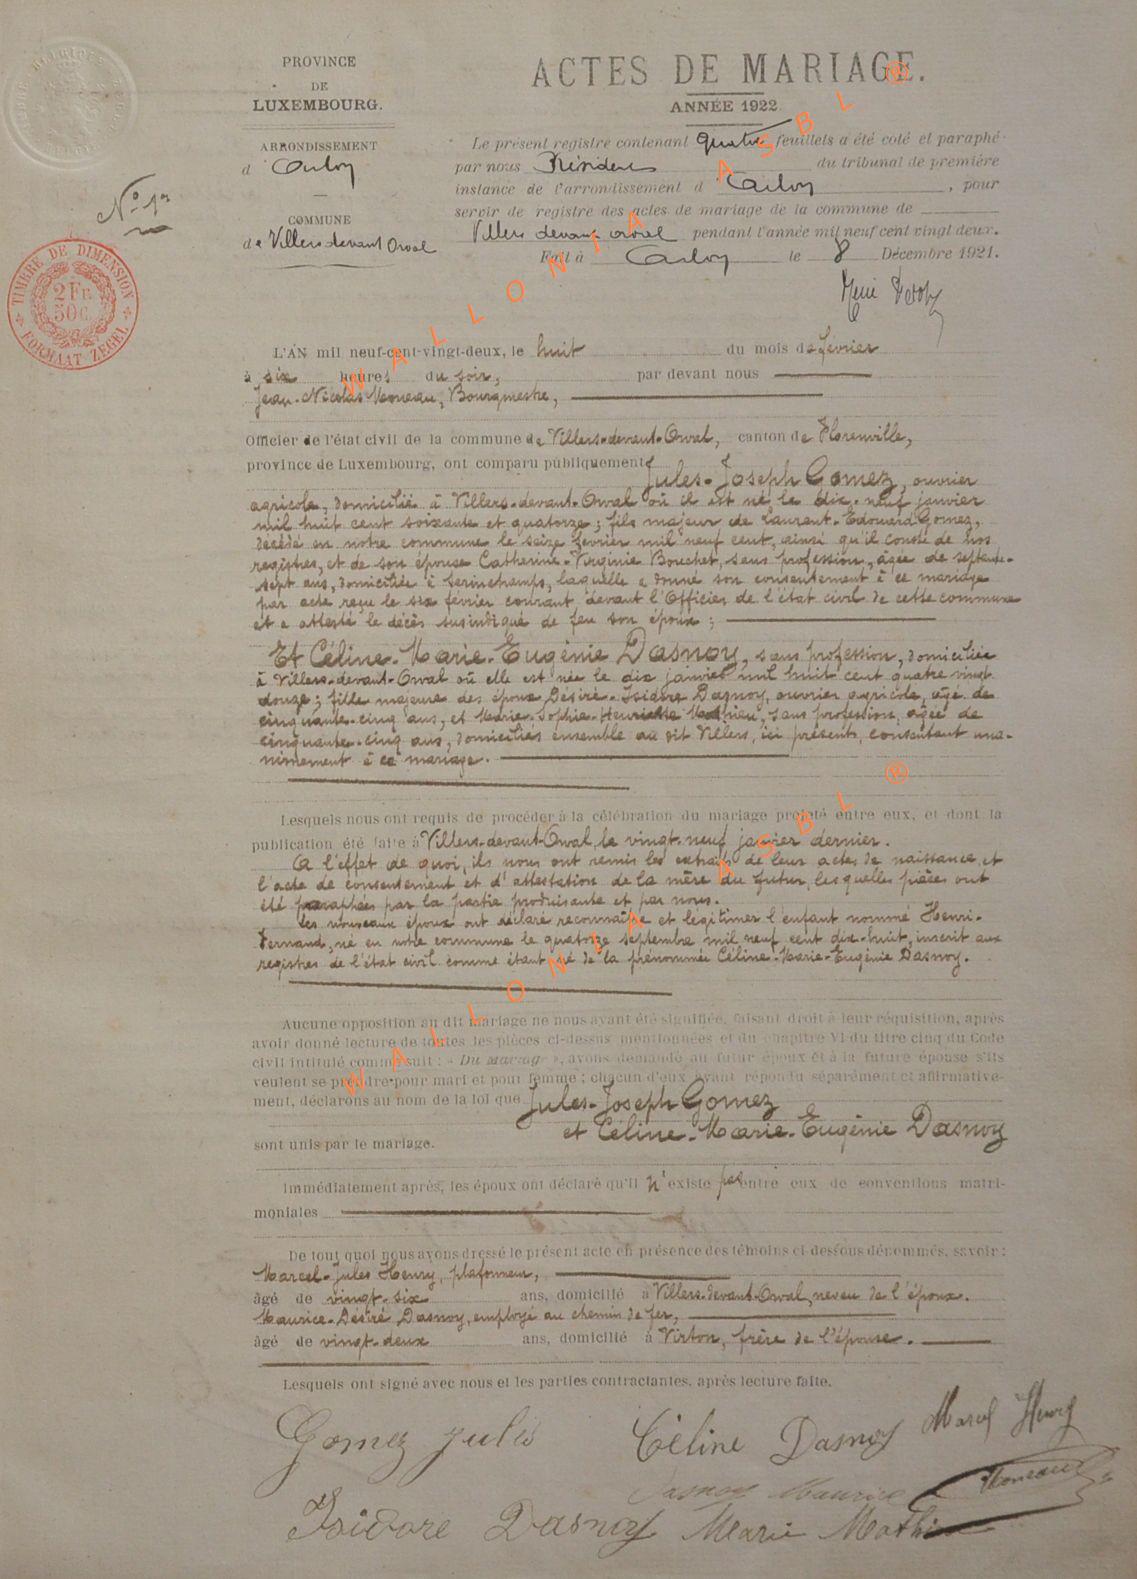 PROVINCE
DE
LUXEMBOURG.
ARRONDISSEMENT
d Arlon
COMMUNE
de Villers devant Orval
N° 1er
TIMBRE DE DIMENSION
2 Fr.
50 C.
FORMAAT ZEGEL
ACTES DE MARIAGE.
ANNÉE 1922.
Le présent registre contenant quatre feuillets a été coté et paraphé
par nous Président du tribunal de première
instance de l'arrondissement d Arlon, pour
servir de registre des actes de mariage de la commune de
Villers devant orval pendant l'année mil neuf cent vingt deux.
Fait à Arlon le 8 Décembre 1921.
L'AN mil neuf-cent-vingt-deux, le huit du mois de février
à six heures du soir, par devant nous
Jean-Nicolas Moneau, Bourgmestre,
Officier de l'état civil de la commune de Villers-devant-Orval, canton de Florenville,
province de Luxembourg, ont comparu publiquement Jules-Joseph Gomez, ouvrier
agricole, domicilié à Villers-devant-Orval où il est né le dix-neuf janvier
mil huit cent soixante et quatorze; fils majeur de Laurent-Edouard Gomez,
décédé en notre commune le seize février mil neuf cent, ainsi qu'il conste de nos
registres, et de son épouse Catherine-Virginie Bouchet, sans profession, âgée de septante-
sept ans, domiciliée à Serinchamps, laquelle a donné son consentement à ce mariage
par acte reçu le six février courant devant l'Officier de l'état civil de cette commune
et a attesté le décès susindiqué de feu son époux;
Et Céline-Marie-Eugénie Dasnoy, sans profession, domiciliée
à Villers-devant-Orval où elle est née le dix janvier mil huit cent quatre vingt
douze; fille majeure des époux Désiré-Isidore Dasnoy, ouvrier agricole, âgé de
cinquante-cinq ans, et Marie-Sophie-Henriette Mathieu, sans profession, âgée de
cinquante-cinq ans, domiciliés ensemble au dit Villers, ici présents, consentant una-
nimement à ce mariage.
Lesquels nous ont requis de procéder à la célébration du mariage projeté entre eux, et dont la
publication été faite à Villers-devant-Orval, le vingt-neuf janvier dernier.
A l'effet de quoi, ils nous ont remis les extraits de leur actes de naissance, et
l'acte de consentement et d'attestation de la mère du futur, lesquelles pièces ont
été paraphées par la partie produisante et par nous.
Les nouveaux époux ont déclaré reconnaître et légitimer l'enfant nommé Henri-
Fernand, né en notre commune le quatorze septembre mil neuf cent dix-huit, inscrit aux
registres de l'état civil comme étant né de la prénommée Céline-Marie-Eugénie Dasnoy.
Aucune opposition au dit mariage ne nous ayant été signifiée, faisant droit à leur réquisition, après
avoir donné lecture de toutes les pièces ci-dessus mentionnées et du chapitre VI du titre cinq du Code
civil intitulé comme suit : « Du Mariage », avons demandé au futur époux et à la future épouse s'ils
veulent se prendre pour mari et pour femme ; chacun d'eux ayant répondu séparément et affirmative-
ment, déclarons au nom de la loi que Jules-Joseph Gomez
et Céline-Marie-Eugénie Dasnoy
sont unis par le mariage.
Immédiatement après, les époux ont déclaré qu'il n'existe pas entre eux de conventions matri-
moniales
De tout quoi nous avons dressé le présent acte en présence des témoins ci-dessous dénommés, savoir :
Marcel-Jules Henry, plafonneur,
âgé de vingt-six ans, domicilié à Villers-devant-Orval, neveu de l'époux.
Maurice-Désiré Dasnoy, employé au chemin de fer,
âgé de vingt-deux ans, domicilié à Virton, frère de l'épouse.
Lesquels ont signé avec nous et les parties contractantes, après lecture faite.
Gomez Jules
Céline Dasnoy
Marcel Henry
Dasnoy Maurice
Moneau
Isidore Dasnoy
Marie Mathieu
WALLONIA ASBL ®
WALLONIA ASBL ®